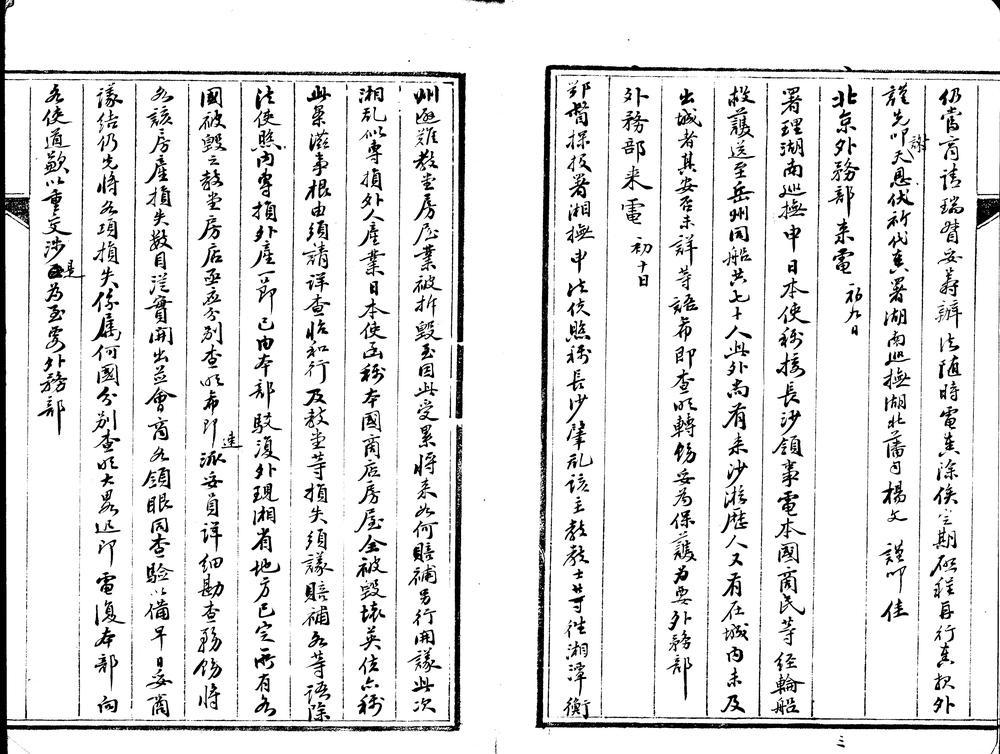 仍當商請瑞督妥籌辦法隨時電奏除俟定期啟程再行奏報外
謹先叩謝天恩伏祈代奏署湖南巡撫湖北藩司楊文 謹叩 佳
北京外務部來電 初九日
署理湖南巡撫申日本使稱接長沙領事電本國商民等經輪船
救護送至岳州同船共七十人此外尚有來沙游歷人又有在城內未及
出城者其安否未詳等語希即查明轉飭妥為保護為要外務部
外務部來電 初十日
鄂督探投署湘撫申法使照稱長沙肇亂該主教教士等往湘潭衡
州避難教堂房屋業被拆毀至因此受累將來如何賠補另行開議此次
湘亂似專損外人產業日本使函稱本國商店房屋全被毀壞英使亦稱
此案滋事根由須請詳查怡和行及教堂等損失須議賠補各等語除
法使照內專損外產一節已由本部駁復外現湘省地方已定所有各
國被毀之教堂房店亟應分別查明希即迅派妥員詳細勘查務飭將
各該房產損失數目從實開出並會商各領眼同查驗以備早日妥商
議結仍先將各項損失係屬何國分別查明大畧迅即電復本部向
各使道歉以重交涉是為至要外務部
三